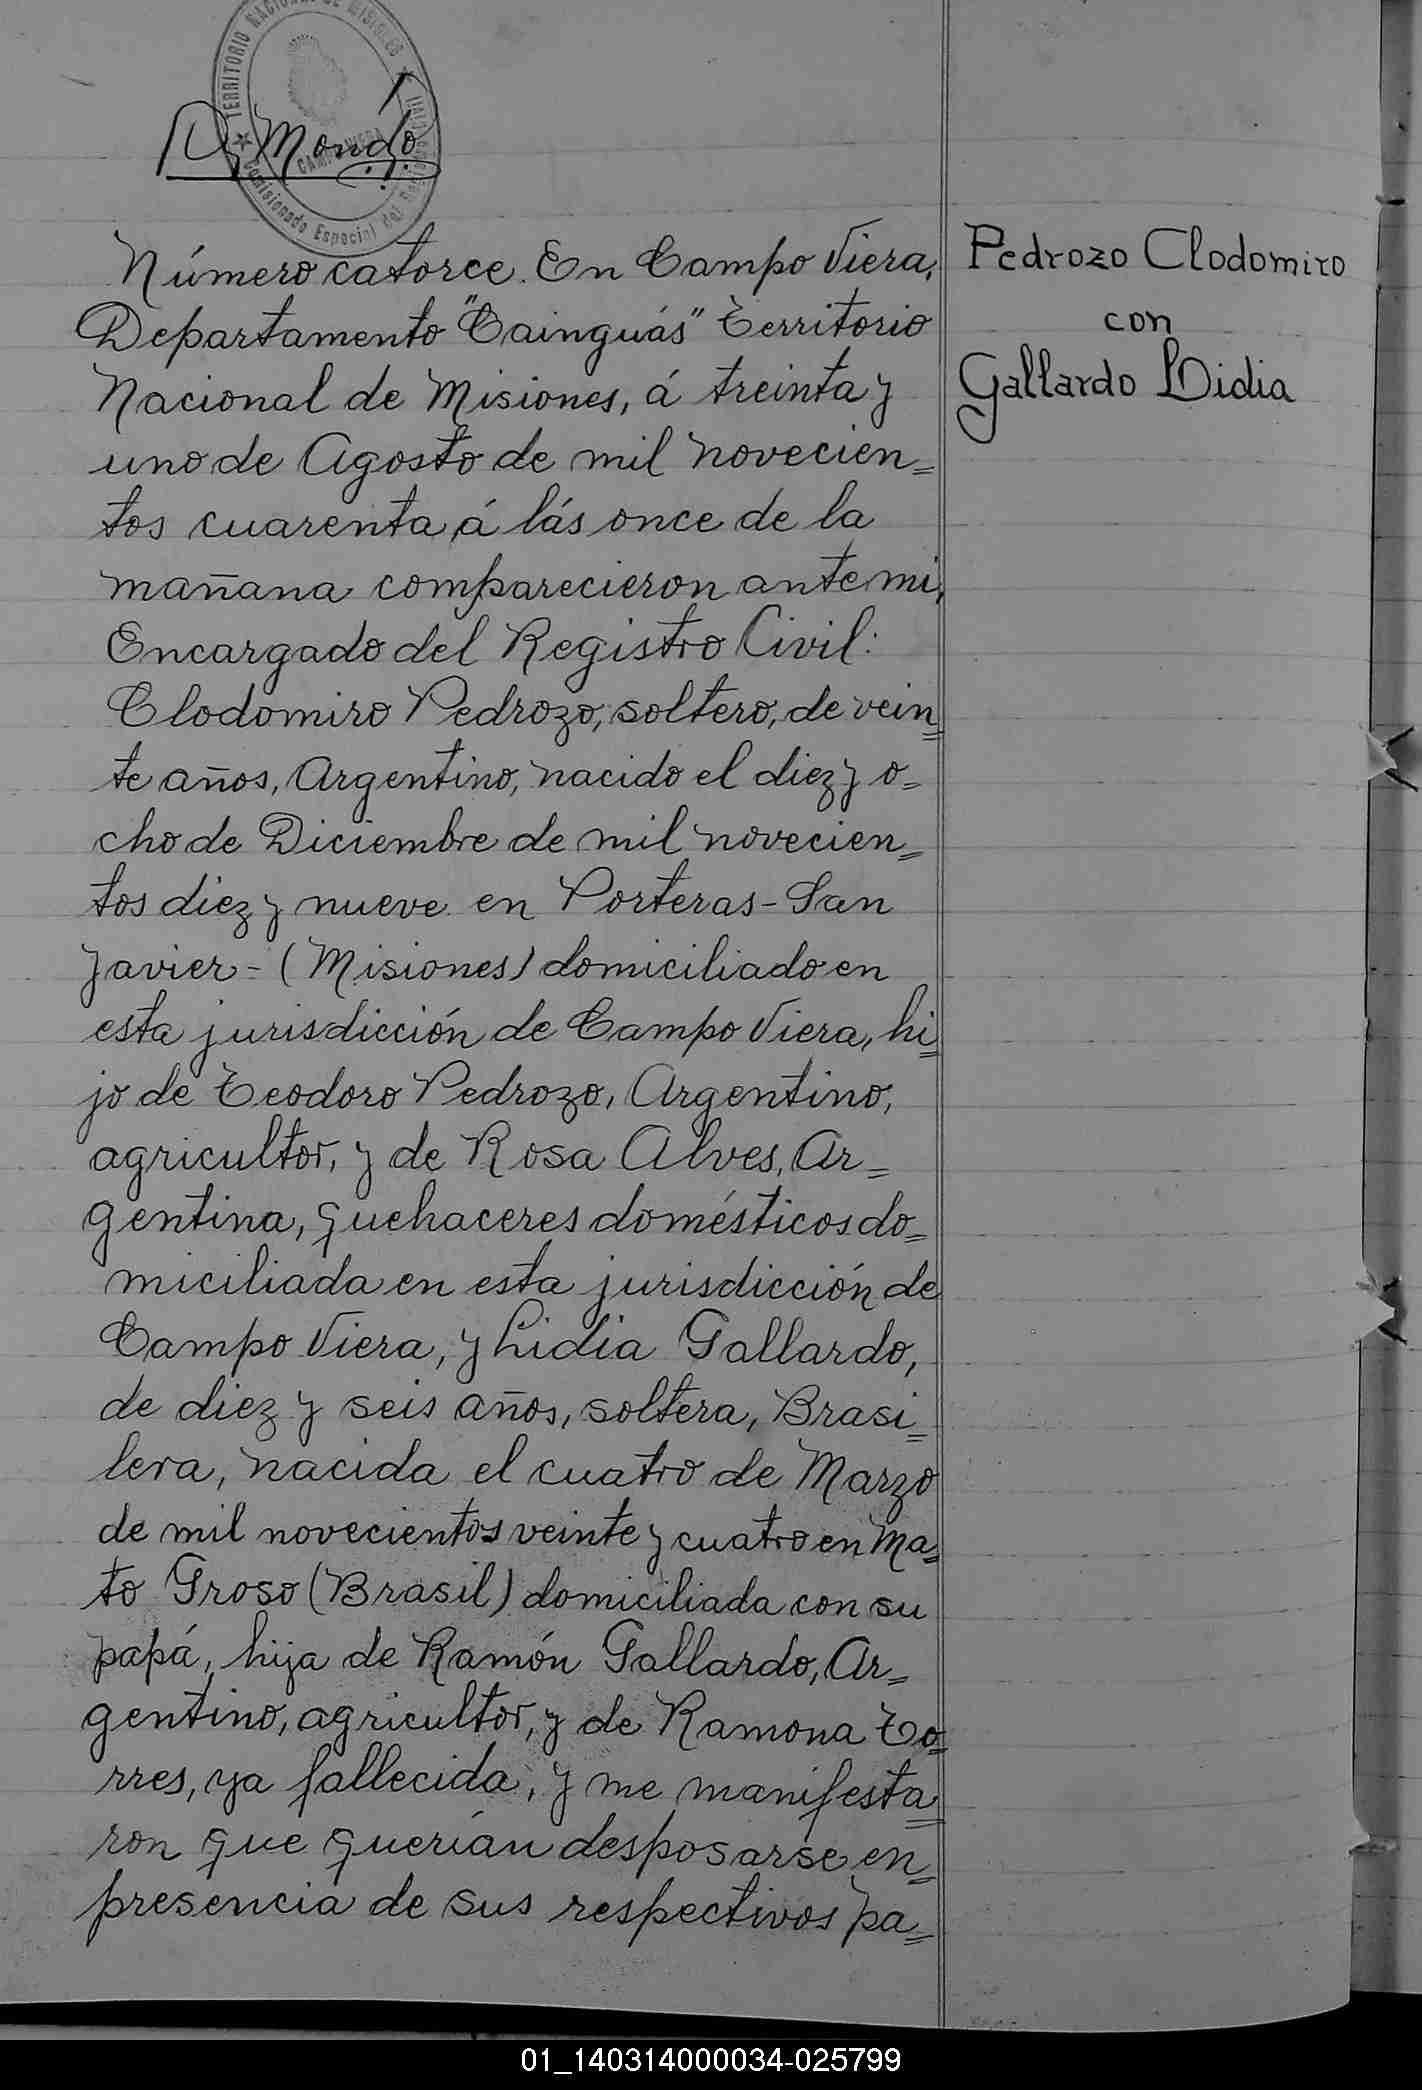 TERRITORIO NACIONAL DE MISIONES
CAMPO VIERA
Comisionado Especial del Registro Civil
Mondo
Número catorce. En Campo Viera,
Departamento "Cainguás" Territorio
Nacional de Misiones, á treinta y
uno de Agosto de mil novecien=
tos cuarenta á lás once de la
mañana comparecieron ante mi,
Encargado del Registro Civil:
Clodomiro Pedrozo, soltero, de vein=
te años, Argentino, nacido el diez y o=
cho de Diciembre de mil novecien=
tos diez y nueve en Porteras-San
Javier-(Misiones) domiciliado en
esta jurisdicción de Campo Viera, hi=
jo de Teodoro Pedrozo, Argentino,
agricultor, y de Rosa Alves, Ar=
gentina, quehaceres domésticos do=
miciliada en esta jurisdicción de
Campo Viera, y Lidia Gallardo,
de diez y seis años, soltera, Brasi=
lera, nacida el cuatro de Marzo
de mil novecientos veinte y cuatro en Ma=
to Groso (Brasil) domiciliada con su
papá, hija de Ramón Gallardo, Ar=
gentino, agricultor, y de Ramona To=
rres, ya fallecida, y me manifesta=
ron que querían desposarse en=
presencia de sus respectivos pa=
Pedrozo Clodomiro
con
Gallardo Lidia
01_140314000034-025799